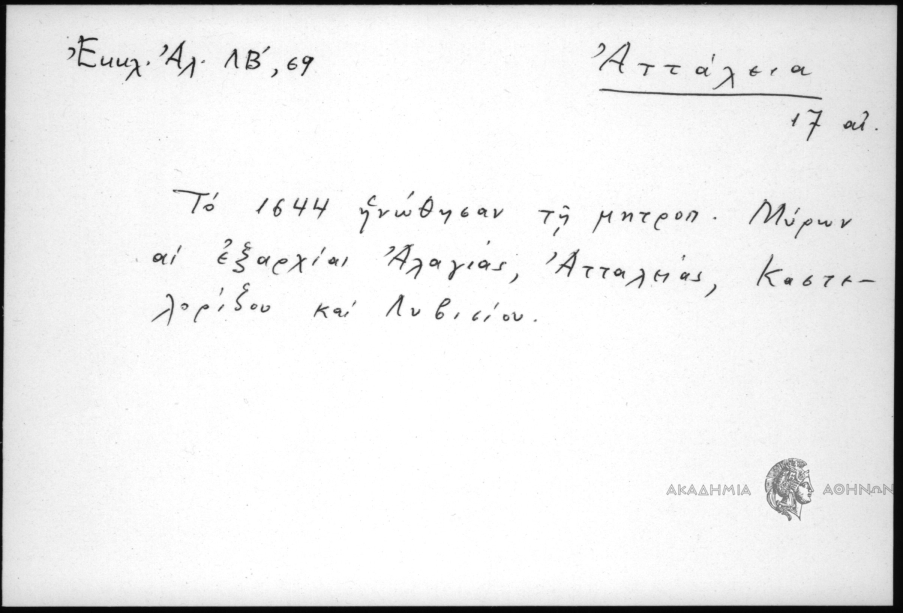 Ἐκκλ. Ἀλ. ΛΒ', 69
Ἀττάλεια
17 αἰ.
Τό 1644 ἡνώθησαν τῇ μητροπ. Μύρων
αἱ ἐξαρχίαι Ἀλαγίας, Ἀτταλείας, Καστε-
λορίξου καί Λυβισίου.
ΑΚΑΔΗΜΙΑ ΑΘΗΝΩΝ